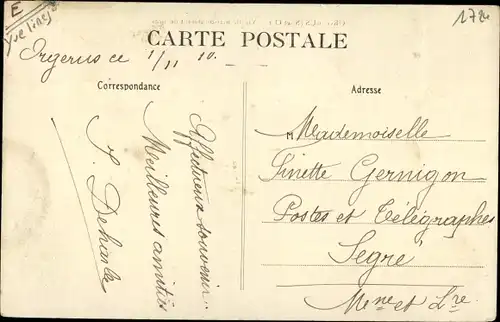 E
Yvelines
1724
CARTE POSTALE
Orgerus ce 1/11 10.
Correspondance
Adresse
Affectueux souvenir.
Meilleures amitiés
S. Deharle
Mademoiselle
Finette Gernigon
Postes et Télégraphes
Segré
Mne et Lre.